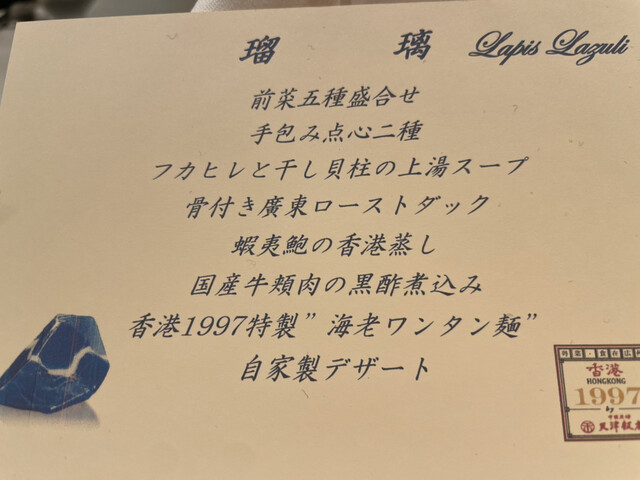 瑠璃 Lapis Lazuli
前菜五種盛合せ
手包み点心二種
フカヒレと干し貝柱の上湯スープ
骨付き廣東ローストダック
蝦夷鮑の香港蒸し
国産牛頬肉の黒酢煮込み
香港1997特製”海老ワンタン麺”
自家製デザート
香港
HONGKONG
1997
by